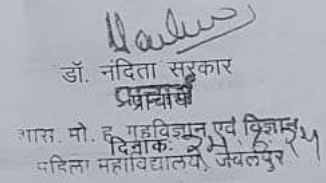 डॉ. नंदिता सरकार
प्राचार्य
शास. मो. ह. गृहविज्ञान एवं विज्ञान
दिनांक:
महिला महाविद्यालय, जबलपुर